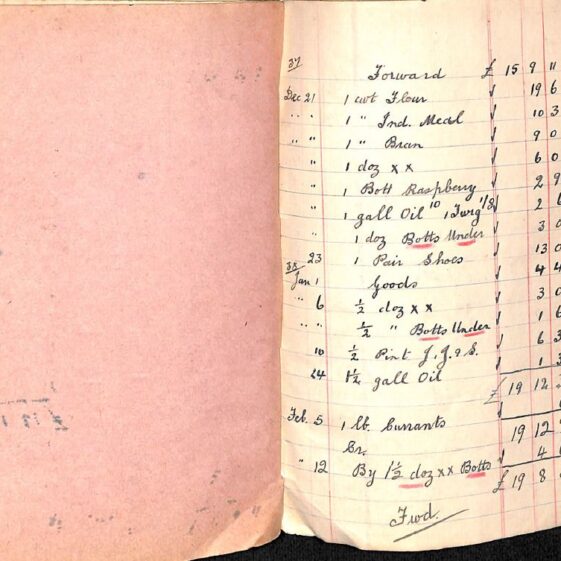 37
Forward £ 15 9 11
Dec 21 1 cwt Flour 19 6
" " 1 " Ind. Meal 10 3
" " 1 " Bran 9 0
" 1 doz x x 6 0
" 1 Bott Raspberry 2 9
" 1 gall Oil 10 1 1/8 2 6
" 1 doz Botts Under 3 0
" 23 1 Pair Shoes 13 0
38
Jan 1 Goods 4 4
" 6 ½ doz x x 3 0
" " ½ " Botts Under 1 6
10 ½ Pint J. J. & S. 6 3
24 1½ gall Oil 1 3
£ 19 12
Feb. 5 1 lb. Currants
19 12
Cr.
" 12 By 1½ doz x x Botts 4
£ 19 8
Fwd.